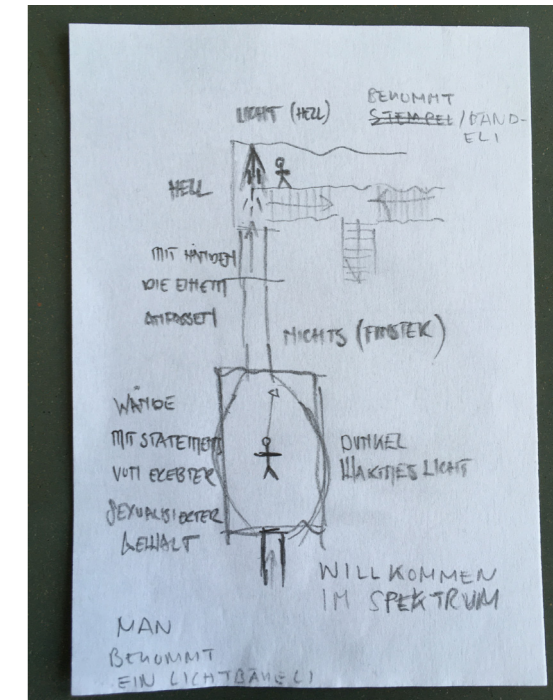 LICHT (HELL)
BEKOMMT
STEMPEL/BAND-
ELI
HELL
MIT HÄNDEN
DIE EINEM
ANFASSEN
NICHTS (FINSTER)
WÄNDE
MIT STATEMENTS
VON ERLEBTER
SEXUALISIERTER
GEWALT
DUNKEL
WARMES LICHT
WILLKOMMEN
IM SPEKTRUM
MAN
BEKOMMT
EIN LICHTBÄNELI